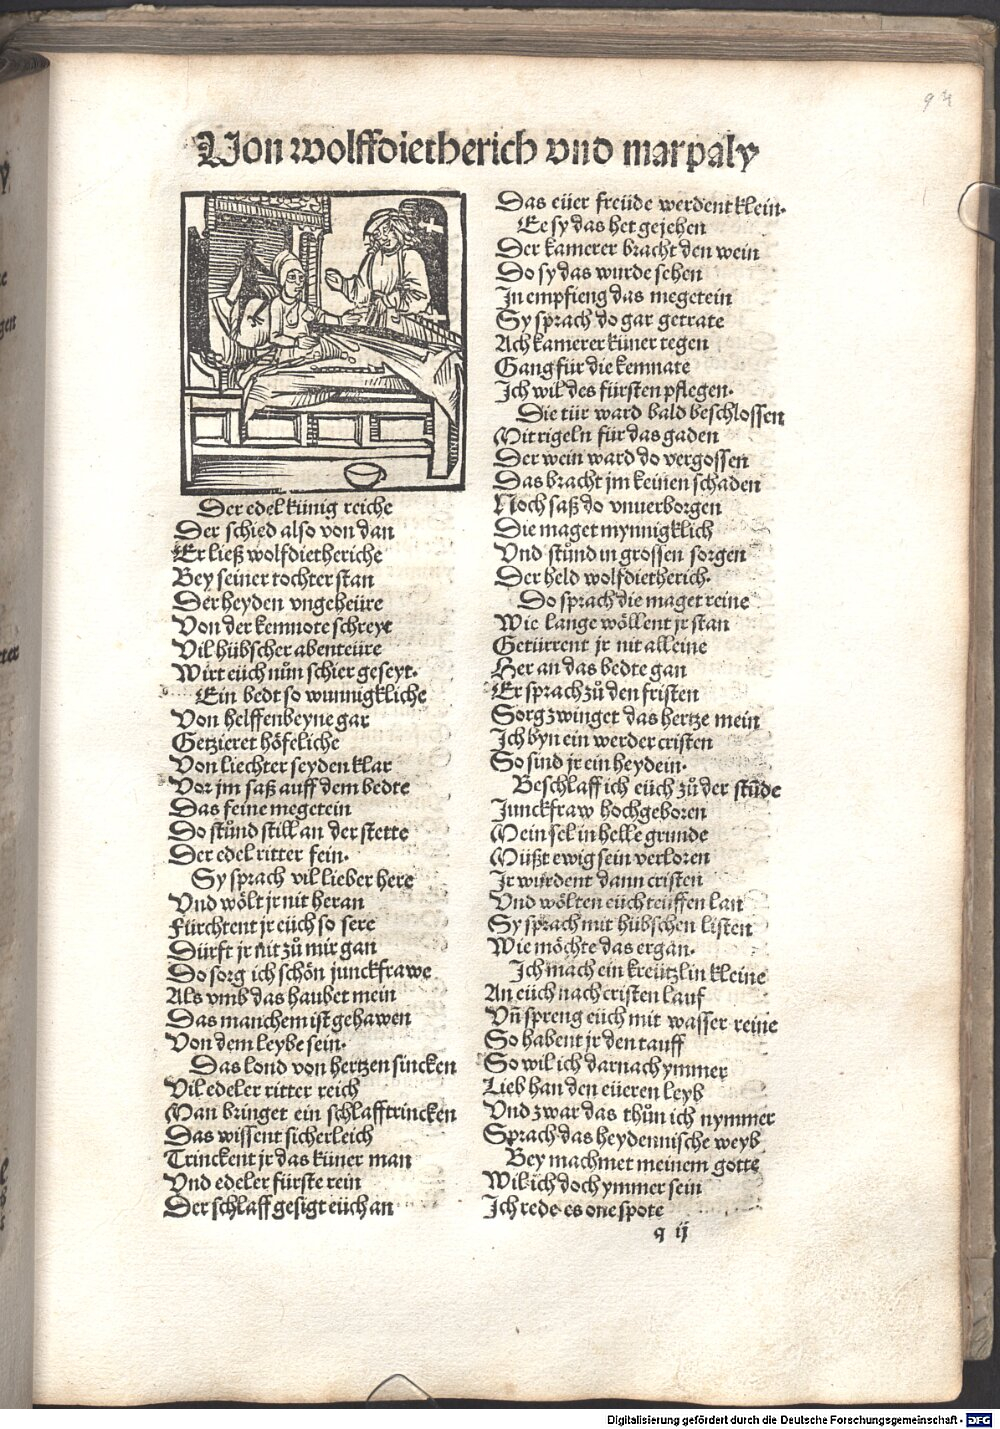 94
Von wolffdietherich vnd marpaly
Der edel künig reiche
Der schied also von dan
Er ließ wolfdietheriche
Bey seiner tochter stan
Der heyden vngeheüre
Von der kemnote schreyt
Vil hübscher abenteüre
Wirt eüch nůn schier geseyt.
Ein bedt so wunnigkliche
Von helffenbeyne gar
Getzieret höfeliche
Von liechter seyden klar
Vor jm saß auff dem bedte
Das feine megetein
Do stůnd still an der stette
Der edel ritter fein.
Sy sprach vil lieber here
Vnd wölt jr nit heran
Fürchtent jr eüch so sere
Dürft jr nit zů mir gan
Do sorg ich schön junckfrawe
Als vmb das haubet mein
Das manchem ist gehawen
Von dem leybe sein.
Das lond von hertzen sincken
Vil edeler ritter reich
Man bringet ein schlafftrincken
Das wissent sicherleich
Trinckent jr das küner man
Vnd edeler fürste rein
Der schlaff gesigt eüch an
Das eüer freüde werdent klein.
Ee sy das het gejehen
Der kamerer bracht den wein
Do sy das wurde sehen
In empfieng das megetein
Sy sprach do gar getrate
Ach kamerer küner tegen
Gang für die kemnate
Ich wil des fürsten pflegen.
Die tür ward bald beschlossen
Mit rigeln für das gaden
Der wein ward do vergossen
Das bracht jm keinen schaden
Noch saß do vnuerborgen
Die maget mynnigklich
Vnd stůnd in grossen sorgen
Der held wolfdietherich.
Do sprach die maget reine
Wie lange wöllent jr stan
Getürrent jr nit alleine
Her an das bedte gan
Er sprach zů den fristen
Sorg zwinget das hertze mein
Ich byn ein werder cristen
So sind jr ein heydein.
Beschlaff ich eüch zů der stūde
Junckfraw hochgeboren
Mein sel in helle grunde
Müßt ewig sein verloren
Jr wurdent dann cristen
Vnd wölten eüch teüffen lan
Sy sprach mit hübschen listen
Wie möchte das ergan.
Ich mach ein kreützlin kleine
An eüch nach cristen lauf
Vñ spreng eüch mit wasser reine
So habent jr den tauff
So wil ich darnach ymmer
Lieb han den eüeren leyb
Vnd zwar das thůn ich nymmer
Sprach das heydennische weyb
Bey machmet meinem gotte
Wil ich doch ymmer sein
Ich rede es one spote
q ij
Digitalisierung gefördert durch die Deutsche Forschungsgemeinschaft - DFG